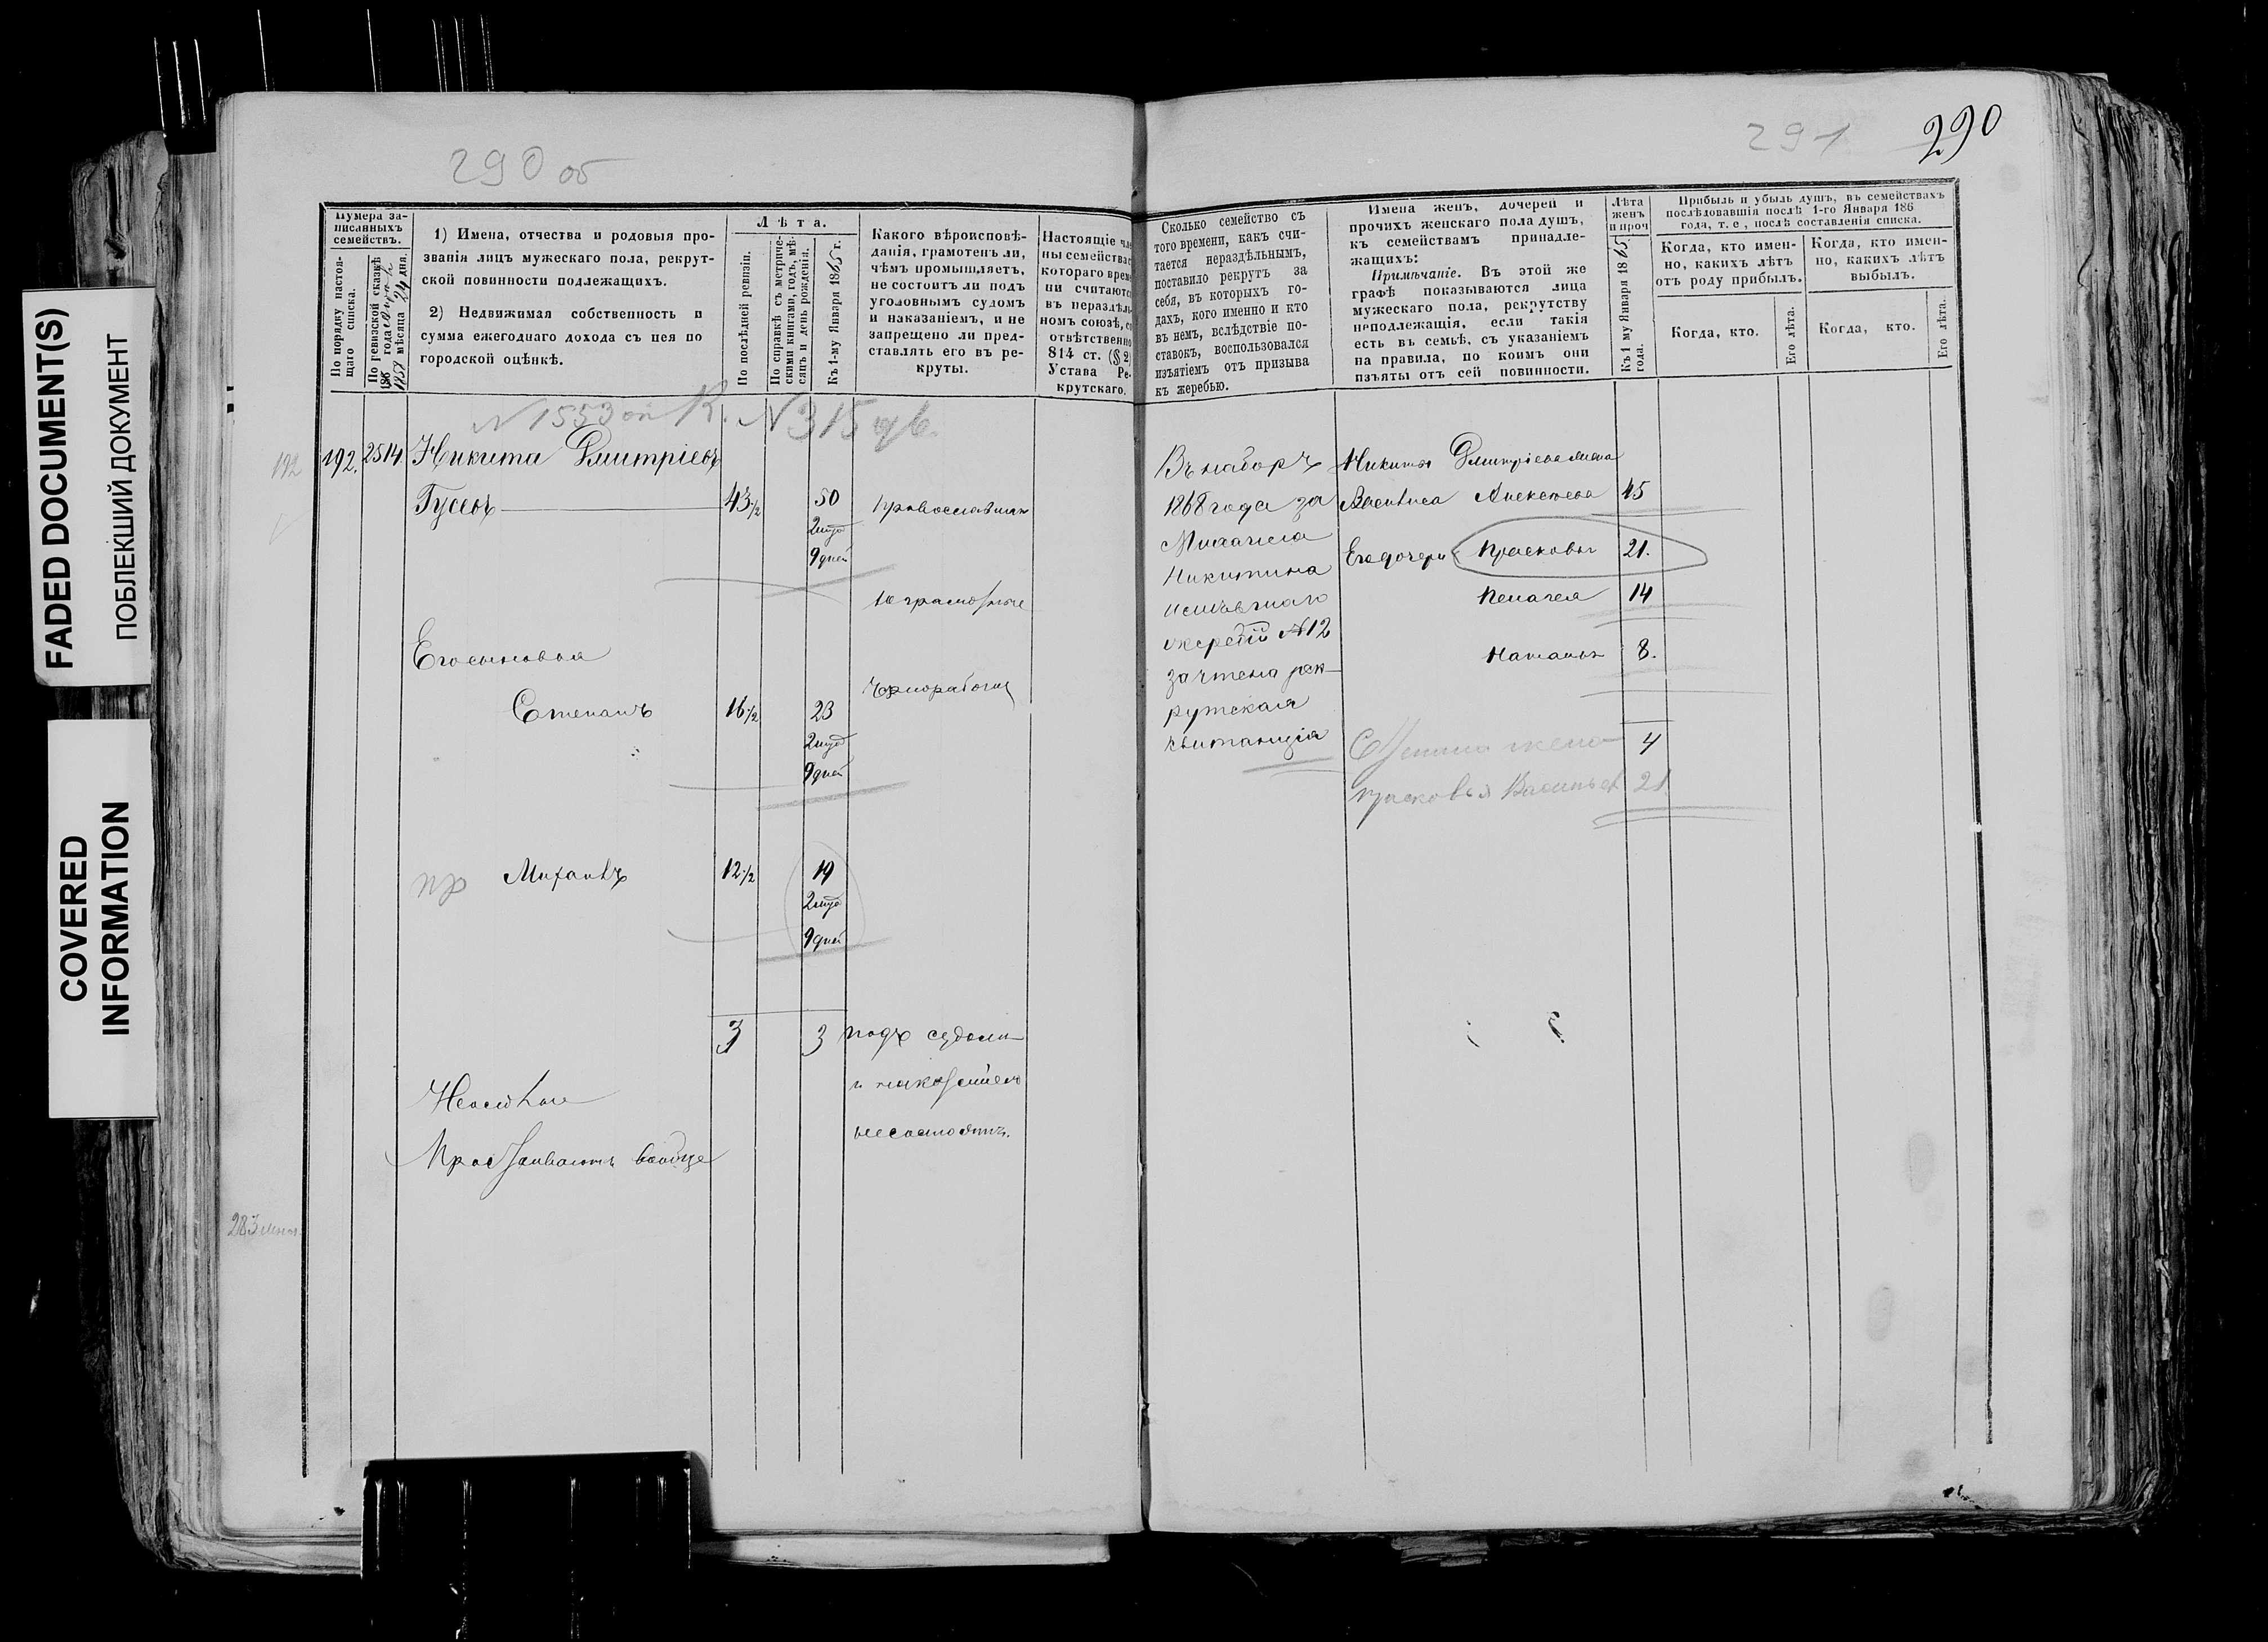 FADED DOCUMENT(S)
ПОБЛЕКШИЙ ДОКУМЕНТ
COVERED
INFORMATION
290 об
Нумера за-
писанныхъ
семействъ.
По порядку настоя-
щаго списка.
По ревизской сказкѣ
186 года
185 мѣсяца 24 дня.
1) Имена, отчества и родовыя про-
званія лицъ мужескаго пола, рекрут-
ской повинности подлежащихъ.
2) Недвижимая собственность и
сумма ежегоднаго дохода съ нея по
городской оцѣнкѣ.
Лѣта.
По послѣдней ревизіи.
По справкѣ съ метриче-
скими книгами, годъ, мѣ-
сяцъ и день рожденія.
Къ 1-му Января 1865 г.
Какого вѣроисповѣ-
данія, грамотенъ ли,
чѣмъ промышляетъ,
не состоитъ ли подъ
уголовнымъ судомъ
и наказаніемъ, и не
запрещено ли пред-
ставлять его въ ре-
круты.
Настоящіе чле
ны семейства с
котораго врем
ни считаютс
въ нераздѣль
номъ союзѣ, со
отвѣтственно
814 ст. (§ 2)
Устава Ре-
крутскаго.
N 1553 N 315
192
192. 2514. Никита Дмитріевъ
Гусевъ 43½ 50 православнаго
2 мѣс
9 дней
неграмотные
Его сыновья
чернорабочій
Степанъ 16½ 23
2 мѣс
9 дней
пр Михаилъ 12½ 19
2 мѣс
9 дней
3 3 подъ судомъ
и наказаніемъ
Неосѣдлые
несостоятъ.
Проживаютъ вообще
283
291 290
Сколько семейство съ
того времени, какъ счи-
тается нераздѣльнымъ,
поставило рекрутъ за
себя, въ которыхъ го-
дахъ, кого именно и кто
въ немъ, вслѣдствіе по-
ставокъ, воспользовался
изъятіемъ отъ призыва
къ жеребью.
Имена женъ, дочерей и
прочихъ женскаго пола душъ,
къ семействамъ принадле-
жащихъ:
Примѣчаніе. Въ этой же
графѣ показываются лица
мужескаго пола, рекрутству
неподлежащія, если такія
есть въ семьѣ, съ указаніемъ
на правила, по коимъ они
изъяты отъ сей повинности.
Лѣта
женъ
и проч
Къ 1 му Января 1865
года.
Прибыль и убыль душъ, въ семействахъ
послѣдовавшія послѣ 1-го Января 186
года, т. е , послѣ составленія списка.
Когда, кто имен-
но, какихъ лѣтъ
отъ роду прибылъ.
Когда, кто имен-
но, какихъ лѣтъ
выбылъ.
Когда, кто.
Его лѣта.
Когда, кто.
Его лѣта.
Въ наборъ
1868 года за
Михаила
Никитина
жеребій №12
зачтена рек-
рутская
квитанція
Никиты Дмитріева жена
Василиса Алексеева 45
Его дочери Прасковья 21.
Пелагея 14
Наталья 8.
4
Степана жена
Прасковья Васильев 21